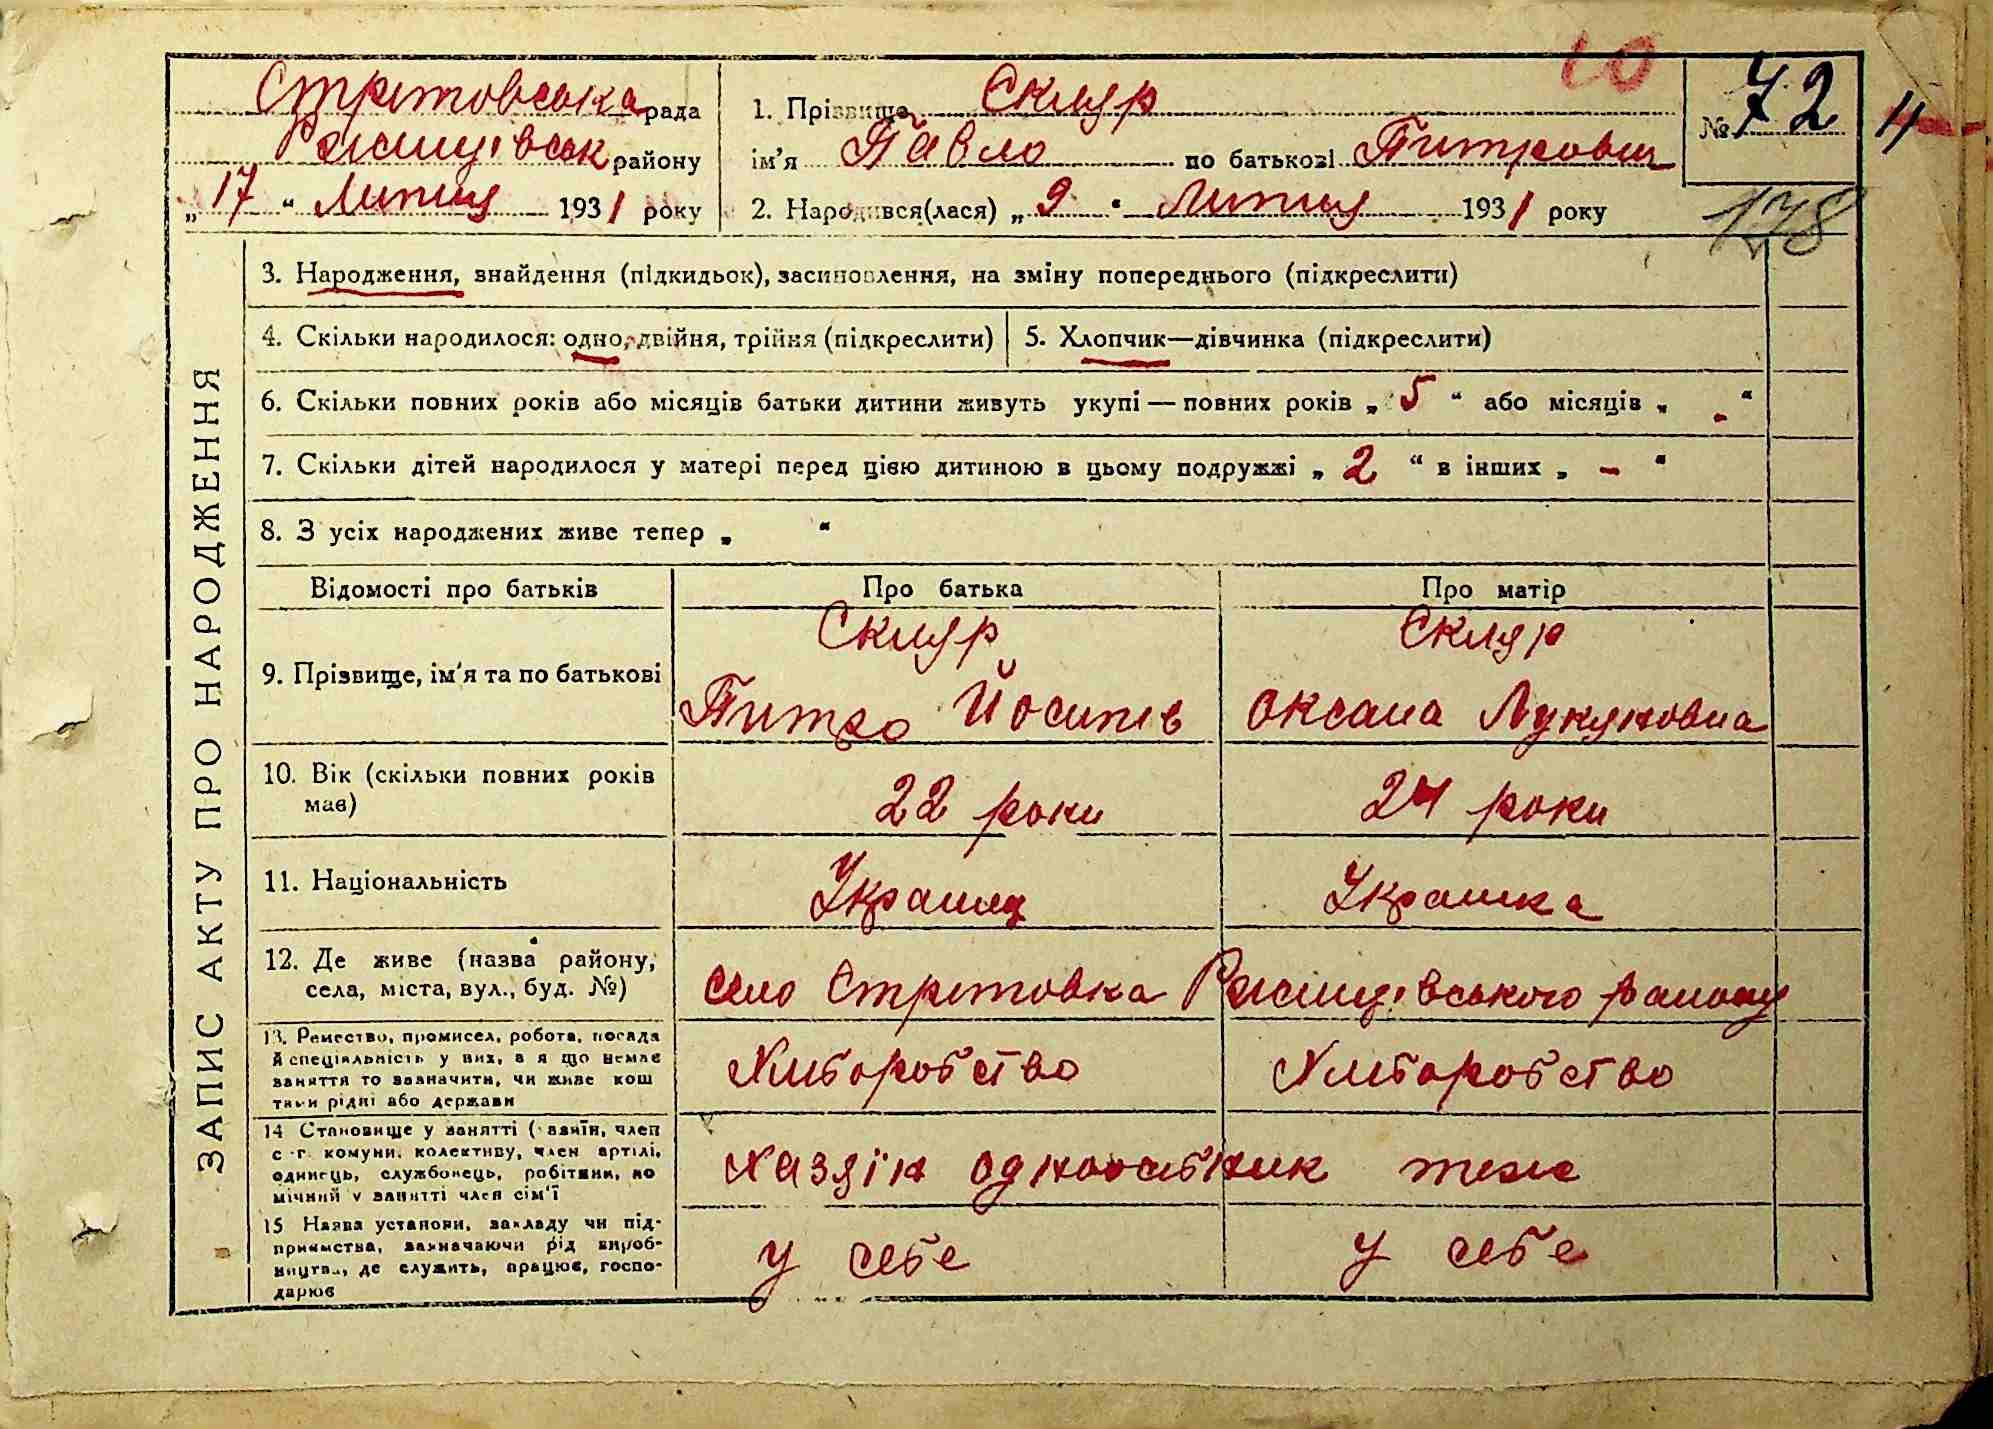 10
Стритовська рада
Ржищівськ району
„17“ Липня 1931 року
1. Прізвище Скляр
ім'я Павло по батькові Питрович
2. Народився(лася) „9“ Липня 1931 року
№ 72
4
178
ЗАПИС АКТУ ПРО НАРОДЖЕННЯ
3. Народження, внайдення (підкидьок), засиновлення, на зміну попереднього (підкреслити)
4. Скільки народилося: одно, двійня, трійня (підкреслити)
5. Хлопчик—дівчинка (підкреслити)
6. Скільки повних років або місяців батьки дитини живуть укупі — повних років „5“ або місяців „-“
7. Скільки дітей народилося у матері перед цією дитиною в цьому подружжі „2“ в інших „-“
8. З усіх народжених живе тепер „ “
Відомості про батьків
Про батька
Про матір
9. Прізвище, ім'я та по батькові
Скляр
Питро Йосипів
Скляр
Оксана Лукяновна
10. Вік (скільки повних років
має)
22 роки
24 роки
11. Національність
Українц
Українка
12. Де живе (назва району,
села, міста, вул., буд. №)
село Стритовка Ржищівського району
13. Ремество, промисел, робота, посада
й спеціяльність у них, а я що немає
заняття то зазначити, чи живе кош
тами рідні або держави
Хліборобство
Хліборобство
14 Становище у занятті (хазяїн, член
с.-г. комуни, колективу, член артілі,
одинець, службовець, робітник, по
мічний у занятті член сім'ї
Хазяїн одноосібник теж
15 Назва установи, закладу чи під-
приємства, зазначаючи рід вироб-
ництва, де служить, працює, госпо-
дарює
у себе
у себе